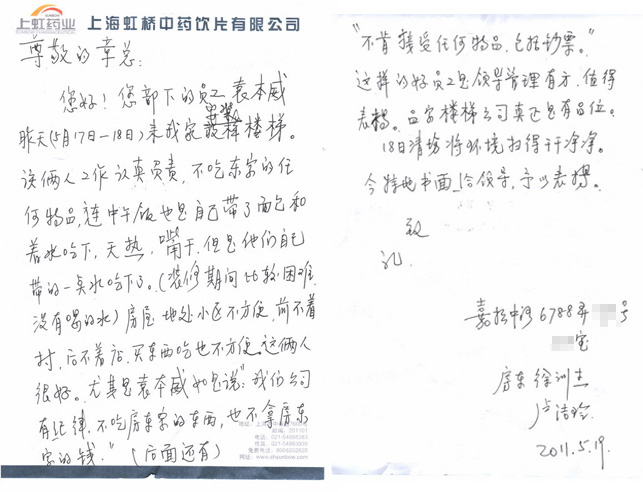 上虹药业
SUNBOW
上海虹桥中药饮片有限公司
尊敬的章总:
您好!您部下的员工袁本威
昨天(5月17日—18日)来我家安装楼梯。
该俩人工作认真负责,不吃东家的任
何物品,连中午饭也是自己带了面包和
着水吃下,天热,嘴干,但是他们自己
带的一点水吃下了。(装修期间比较困难
没有喝的水)房屋地处小区不方便,前不着
村,后不着店,买东西吃也不方便。这俩人
很好。尤其是袁本威如是说:"我们公司
有纪律,不吃房东家的东西,也不拿房东
家的钱。"(后面还有)
201101
电话:021-54865383
免费电话:8008202620
"不肯接受任何物品,包括钞票。"
这样的好员工是领导管理有方,值得
表扬。品家楼梯公司真正是有品位。
18日清场将环境扫得干干净净。
今特地书面给领导,予以表扬。
致
礼
嘉松中路6788弄 号
室
房东 徐训杰
卢洁玲
2011.5.19.